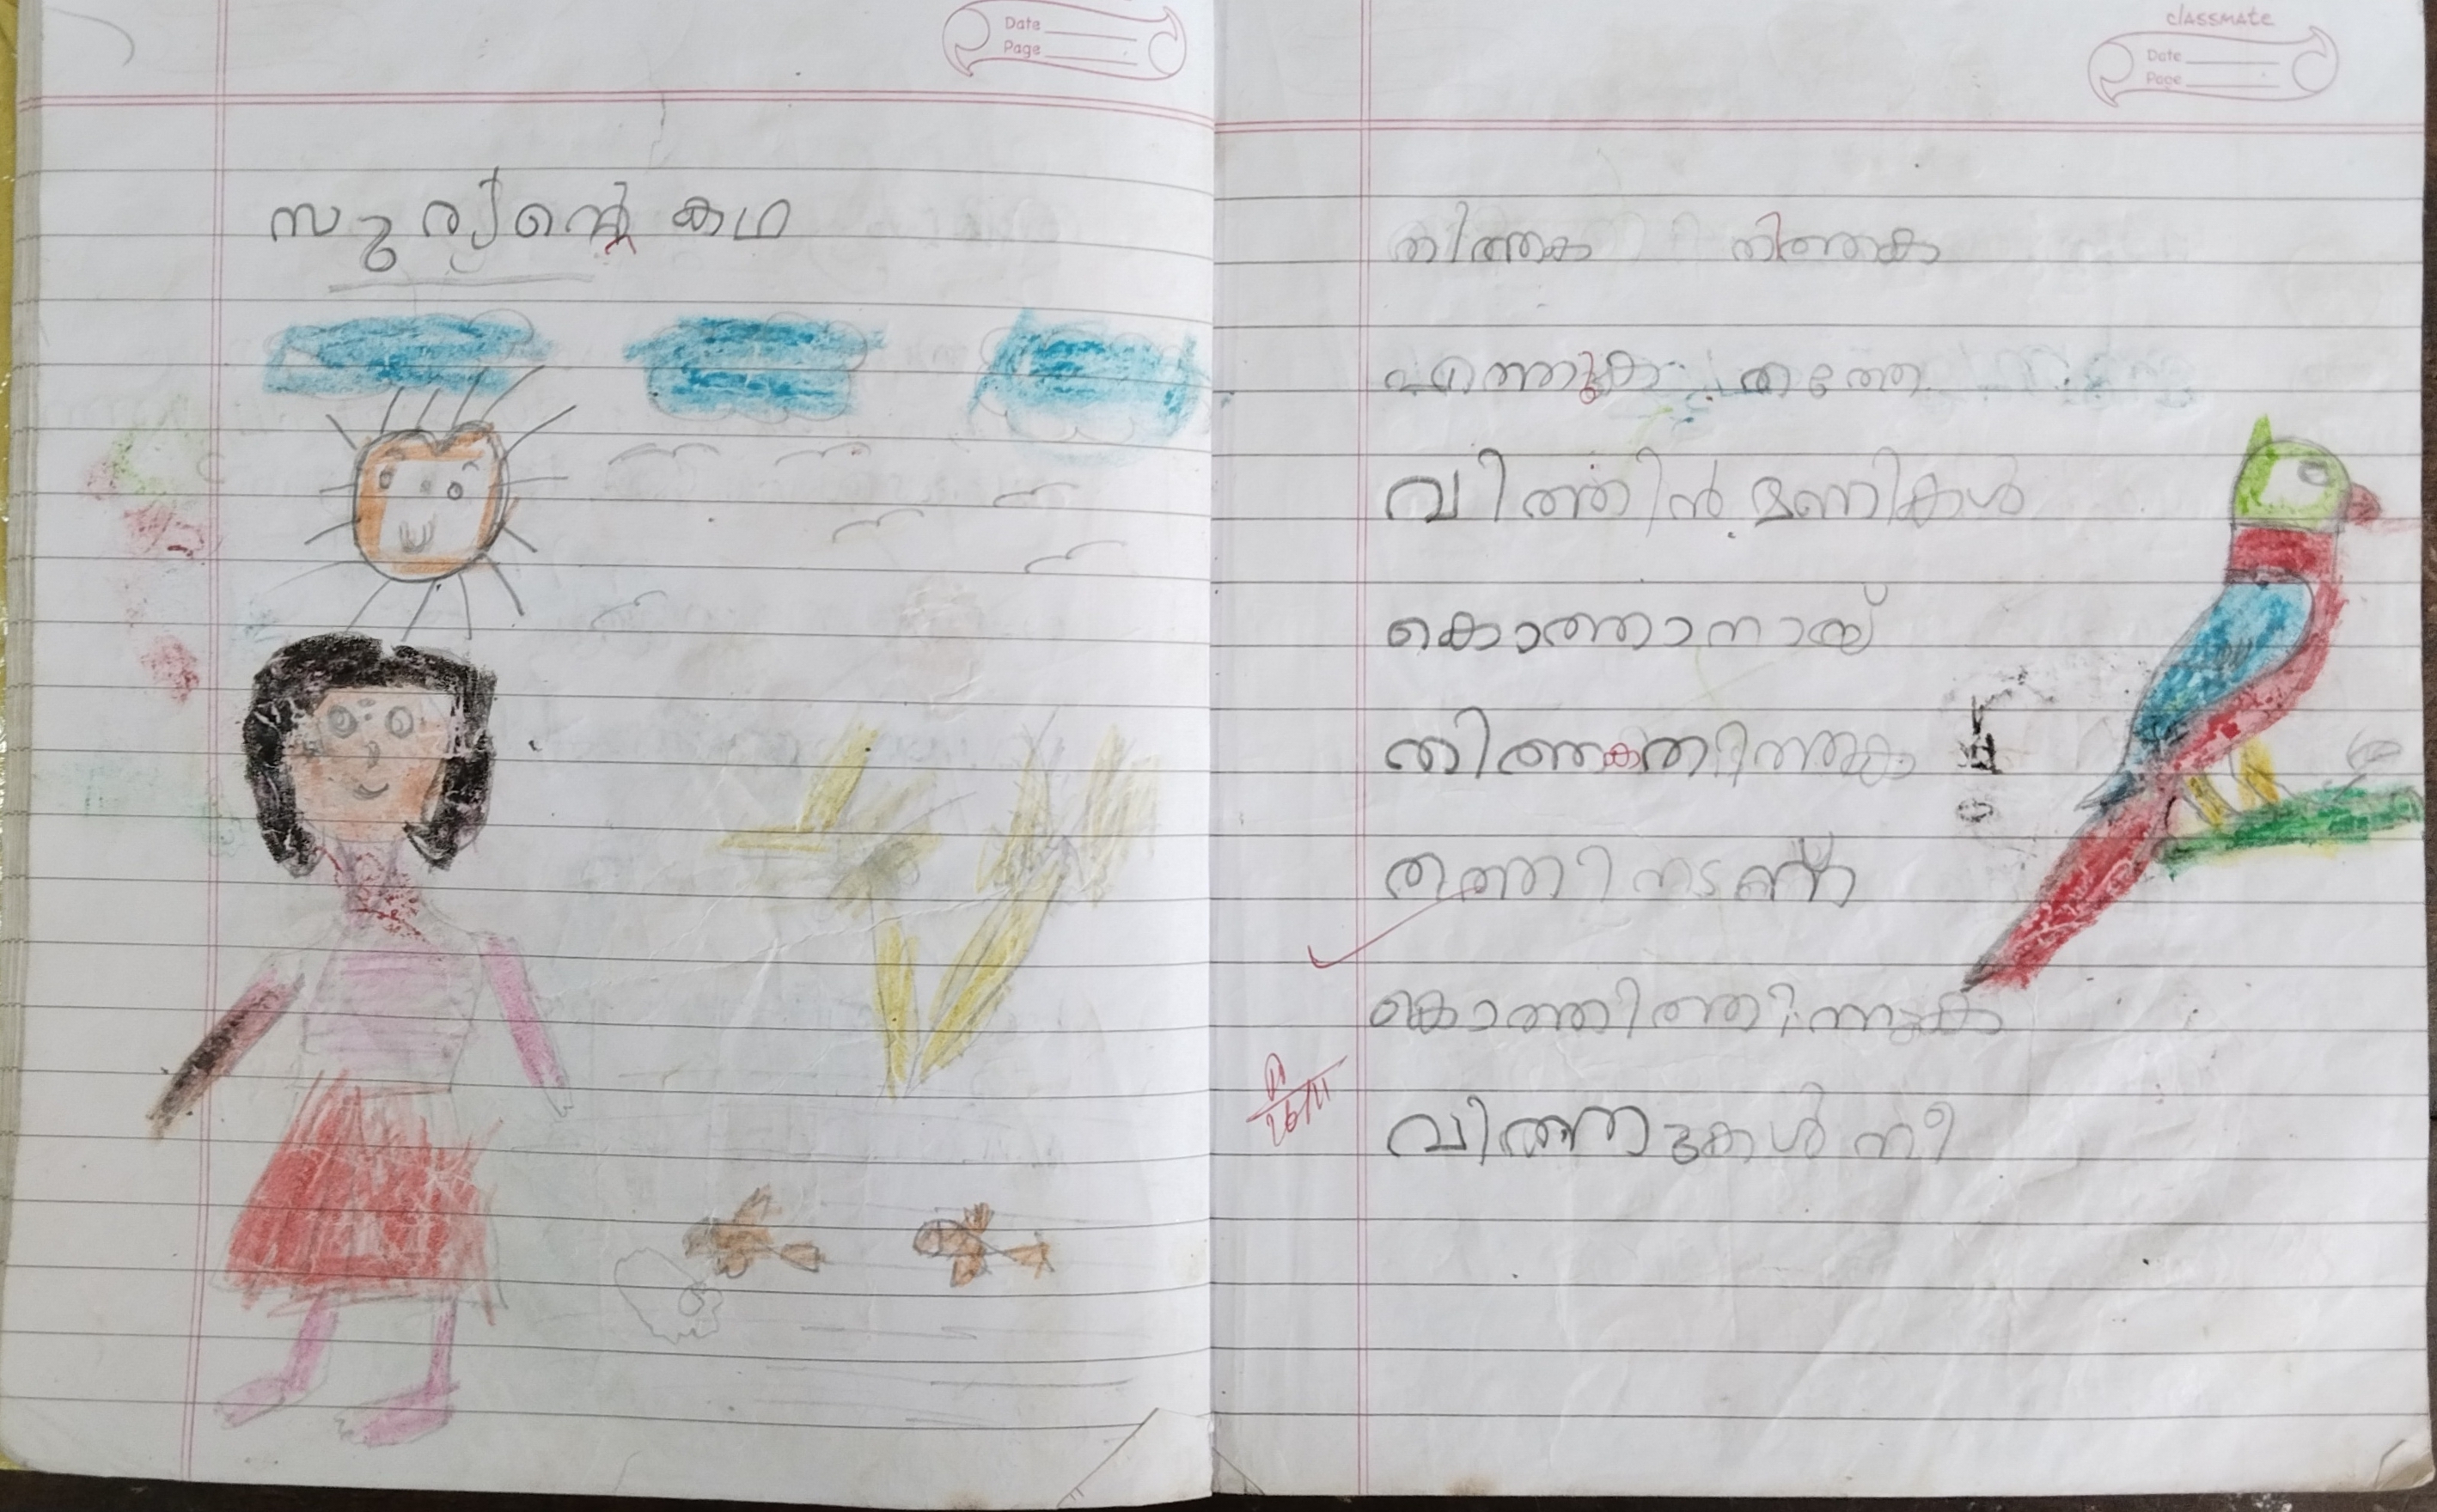 Date
Page
സൂര്യൻ്റെ കഥ
classmate
Date
Page
തിത്തക തിത്തക
എത്തുക തത്തേ
വിത്തിൻ മണികൾ
കൊത്താനായ്
തിത്തകതിത്തക
തത്തിനടന്ന്
കൊത്തിത്തിന്നുക
26/11
വിത്തുകൾ നീ